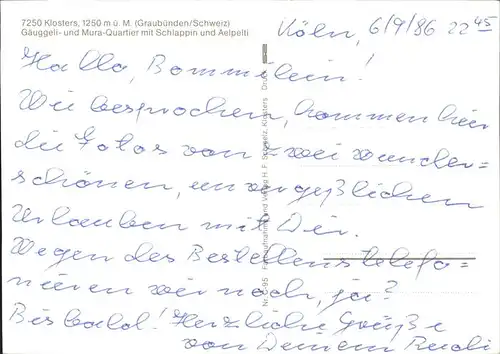 7250 Klosters, 1250 m ü. M. (Graubünden/Schweiz)
Gäuggeli- und Mura-Quartier mit Schlappin und Aelpelti
Köln, 6/9/86 22 45
Hallo, Bommilein!
Wie besprochen, kommen hier
die Fotos von zwei wunder=
schönen, unvergeßlichen
Urlauben mit Dir.
Wegen des Bestellens telefo=
nieren wir noch, ja?
Bis bald! Herzliche Grüße
von Deinem Rudi